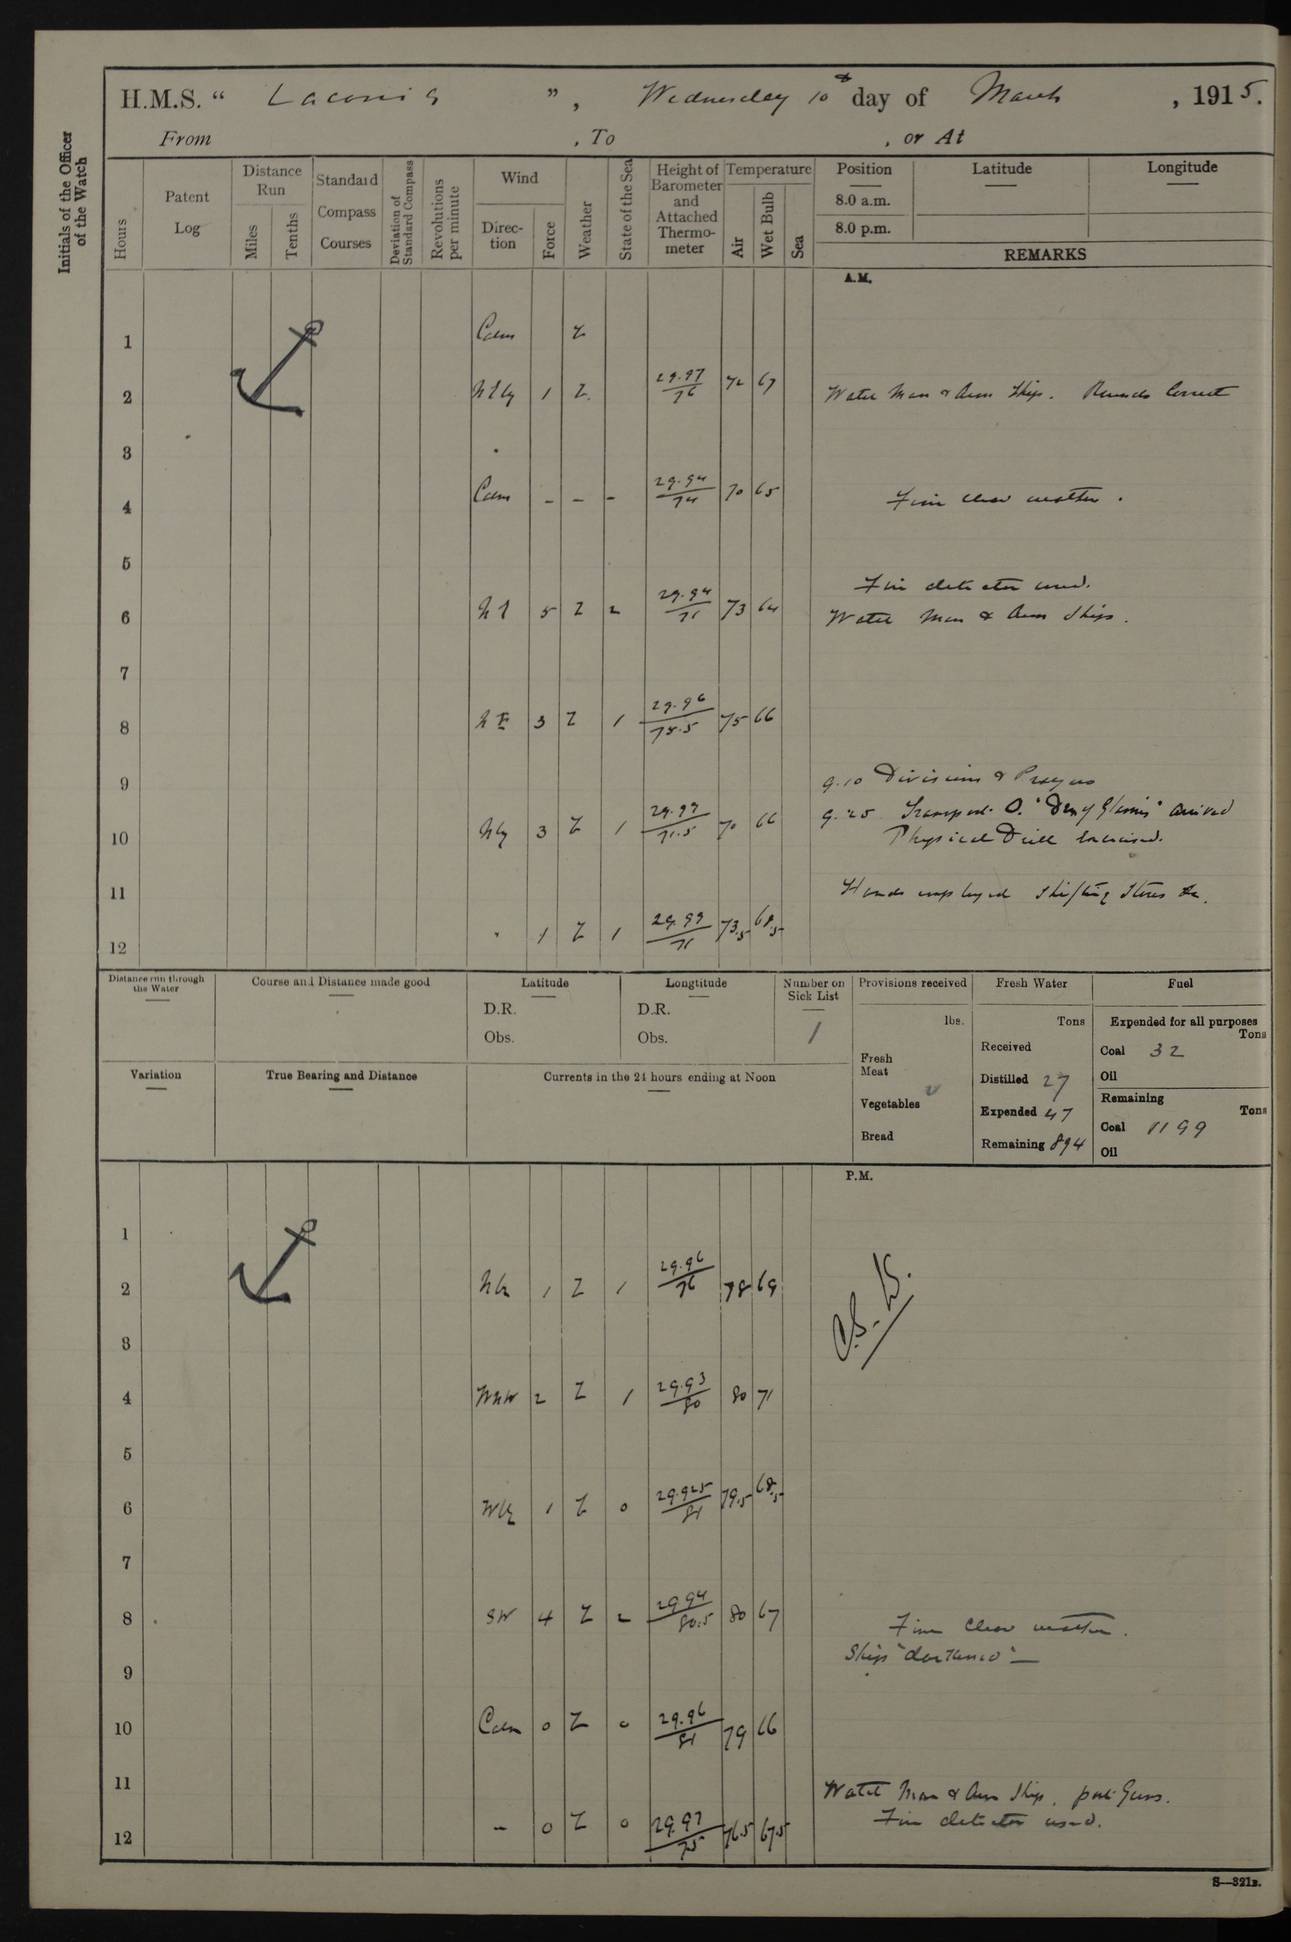 H.M.S. “ Laconia ” , Wednesday 10th day of March , 1915.
From , To , or At
Initials of the Officer of the Watch
Hours
Patent Log
Distance Run
Miles
Tenths
Standard Compass Courses
Deviation of Standard Compass
Revolutions per minute
Wind
Direction
Force
Weather
State of the Sea
Height of Barometer and Attached Thermometer
Temperature
Air
Wet Bulb
Sea
Position Latitude Longitude
8.0 a.m.
8.0 p.m.
REMARKS
A.M.
1 Calm Z
2 1 Z 29.97/76 72 67 Water Man & Arm Ship. Rounds Correct
3
4 Calm - - - 29.94/74 70 65 Fine clear weather.
5 Fire detector used.
6 5 Z 2 29.94/71 73 64 Water Man & Arm Ship.
7
8 NE 3 Z 1 29.96/78.5 75 66
9 9.10 Divisions & Prayers
9.25 Transport O. "Den of Glamis" arrived
10 Nly 3 Z 1 29.97/71.5 70 66 Physical Drill Exercised.
11 Hands employed shifting stores &c.
12 " 1 Z 1 29.99/71 73.5 68.5
Distance run through the Water
Course and Distance made good
Latitude
D.R.
Obs.
Longtitude
D.R.
Obs.
Number on Sick List
1
Provisions received
lbs.
Fresh Meat
Vegetables
Bread
Fresh Water
Tons
Received
Distilled 27
Expended 47
Remaining 894
Fuel
Expended for all purposes
Tons
Coal 32
Oil
Remaining
Tons
Coal 1199
Oil
Variation
True Bearing and Distance
Currents in the 24 hours ending at Noon
P.M.
1
2 Nly 1 Z 1 29.96/76 78 69
3
4 WNW 2 Z 1 29.93/80 80 71
5
6 Wly 1 Z 0 29.925/81 79.5 68.5
7
8 SW 4 Z 2 29.94/80.5 80 67 Fine Clear weather.
Ships "darkened" —
9
10 Calm 0 Z 0 29.96/81 79 66
11 Water Man & Arm Ship. port Guns.
12 - 0 Z 0 29.97/75 76.5 67.5 Fire detector used.
S—321B.